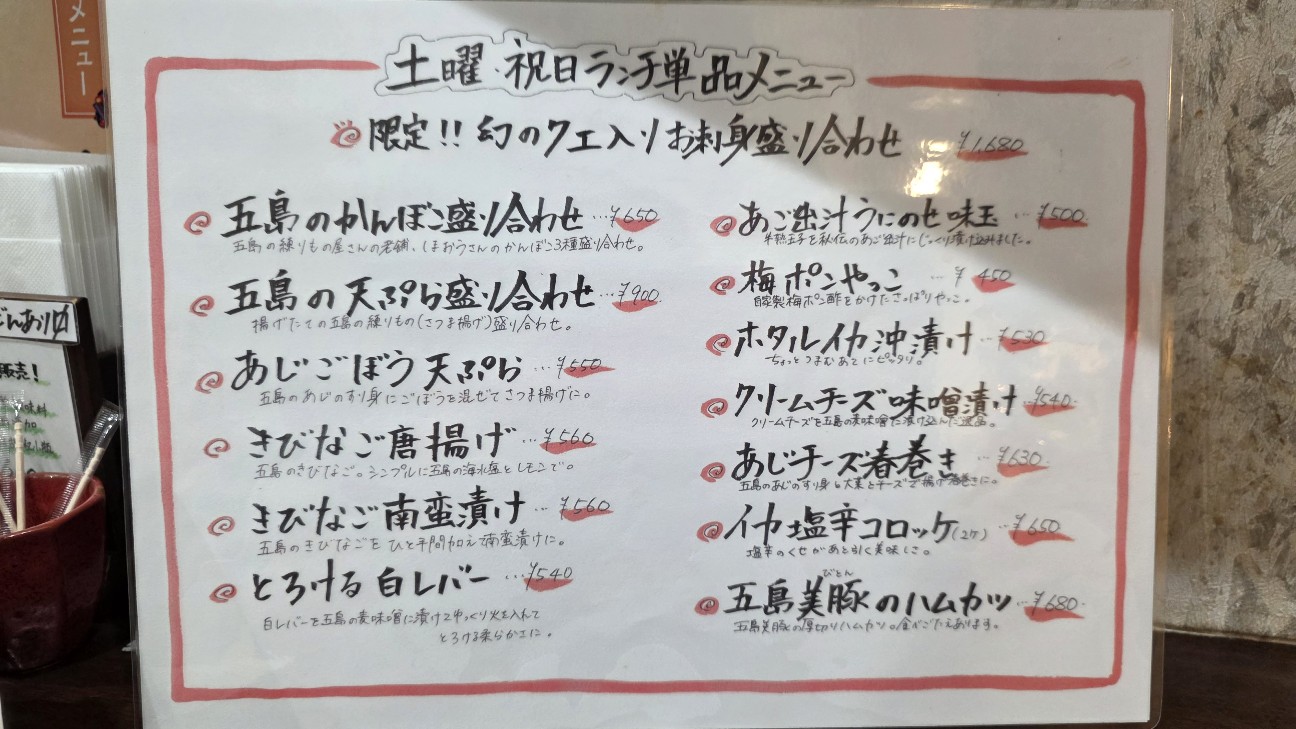 メニュー
土曜・祝日ランチ単品メニュー
限定!! 幻のクエ入りお刺身盛り合わせ ¥1,680
五島のかんぼこ盛り合わせ…¥650
五島の練りもの屋さんの老舗、しまおうさんのかんぼこ3種盛り合わせ。
五島の天ぷら盛り合わせ…¥900
揚げたての五島の練りもの(さつま揚げ)盛り合わせ。
あじごぼう天ぷら…¥550
五島のあじのすり身にごぼうを混ぜてさつま揚げに。
きびなご唐揚げ…¥560
五島のきびなご。シンプルに五島の海水塩とレモンで。
きびなご南蛮漬け…¥560
五島のきびなごをひと手間加えて南蛮漬けに。
とろける白レバー…¥540
白レバーを五島の麦味噌に漬けてゆっくり火を入れて
とろける柔らかさに。
あご出汁うにのせ味玉…¥500
半熟玉子を秘伝のあご出汁にじっくり漬け込みました。
梅ポンやっこ…¥450
自家製梅ポン酢をかけたさっぱりやっこ。
ホタルイカ沖漬け…¥530
ちょっとつまむあてにピッタリ。
クリームチーズ味噌漬け…¥540
クリームチーズを五島の麦味噌に漬け込んだ逸品。
あじチーズ春巻き…¥630
五島のあじのすり身と大葉とチーズで揚げ春巻きに。
イカ塩辛コロッケ(2ケ)…¥650
塩辛のくせがあと引く美味しさ。
びとん
五島美豚のハムカツ…¥680
五島美豚の厚切りハムカツ。食べごたえあります。
販売!